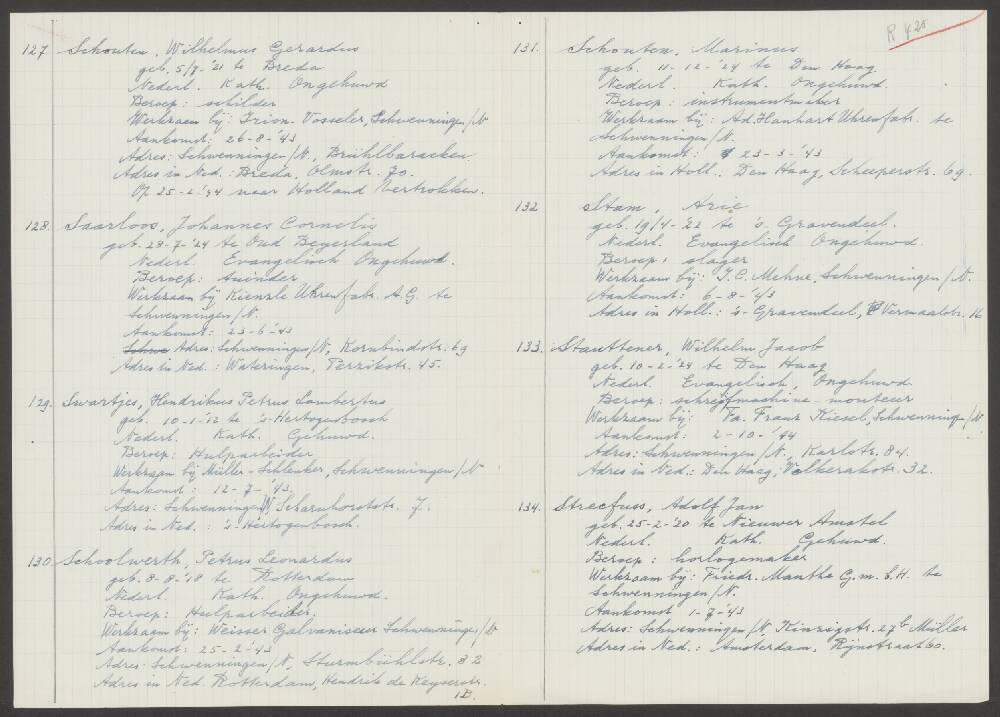 127. Schouten, Wilhelmus Gerardus
geb. 5/7-'21 te Breda
Nederl. Kath. Ongehuwd
Beroep: schilder
Werkzaam bij: Irion. Vosseler, Schwenningen/N
Aankomst: 26-8-'43
Adres: Schwenningen/N., Brühlbaracken
Adres in Ned.: Breda, Olmstr. 70.
Op 25-2-'44 naar Holland vertrokken.
128. Saarloos, Johannes Cornelis
geb. 28-7-'24 te Oud Beyerland
Nederl. Evangelisch Ongehuwd.
Beroep: tuinder
Werkzaam bij Kienzle Uhrenfabr. A.G. te
Schwenningen/N.
Aankomst: 23-6-'43
Adres: Schwenningen/N, Kornbindstr. 69
Adres in Ned.: Wateringen, Perzikstr. 45.
129. Swartjes, Hendrikus Petrus Lambertus
geb. 10-1-'12 te 's-Hertogenbosch
Nederl. Kath. Gehuwd.
Beroep: Hulparbeider
Werkzaam bij Müller-Schlenker, Schwenningen/N
Aankomst: 12-7-'43.
Adres: Schwenningen/N Scharnhorststr. 7.
Adres in Ned.: 's-Hertogenbosch.
130. Schoolwerth, Petrus Leonardus
geb. 8-8-'18 te Rotterdam
Nederl. Kath. Ongehuwd.
Beroep: Hulparbeider.
Werkzaam bij: Weisser Galvaniseur Schwenningen/N
Aankomst: 25-2-'43
Adres: Schwenningen/N, Sturmbühlstr. 82
Adres in Ned. Rotterdam, Hendrik de Keyserstr.
1B.
R 425
131. Schouten, Marinus
geb. 11-12-'24 te Den Haag
Nederl. Kath. Ongehuwd.
Beroep: instrumentmaker
Werkzaam bij: Ad. Hanhart Uhrenfabr. te
Schwenningen/N.
Aankomst: 23-3-'43
Adres in Holl.: Den Haag, Scheeperstr. 69.
132 Stam, Arie
geb. 19/4-'22 te 's Gravendeel.
Nederl. Evangelisch Ongehuwd.
Beroep: slager
Werkzaam bij: J.C. Mehne, Schwenningen/N.
Aankomst: 6-8-'43
Adres in Holl.: 's-Gravendeel, Vermaatstr. 16
133. Stauttener, Wilhelm Jacob
geb. 10-2-'24 te Den Haag
Nederl. Evangelisch, Ongehuwd
Beroep: schrijfmachine-monteur
Werkzaam bij: Fa. Franz Kiesel, Schwenningen/N
Aankomst: 2-10-'44
Adres: Schwenningen/N., Karlstr. 84.
Adres in Ned.: Den Haag, Volkerakstr. 32.
134. Strecfuss, Adolf Jan
geb. 25-2-'20 te Nieuwer Amstel
Nederl. Kath. Gehuwd.
Beroep: horlogemaker
Werkzaam bij: Friedr. Mauthe G.m.b.H. te
Schwenningen/N.
Aankomst 1-7-'43
Adres: Schwenningen/N, Kinzigstr. 27b Müller
Adres in Ned.: Amsterdam, Rijnstraat 60.